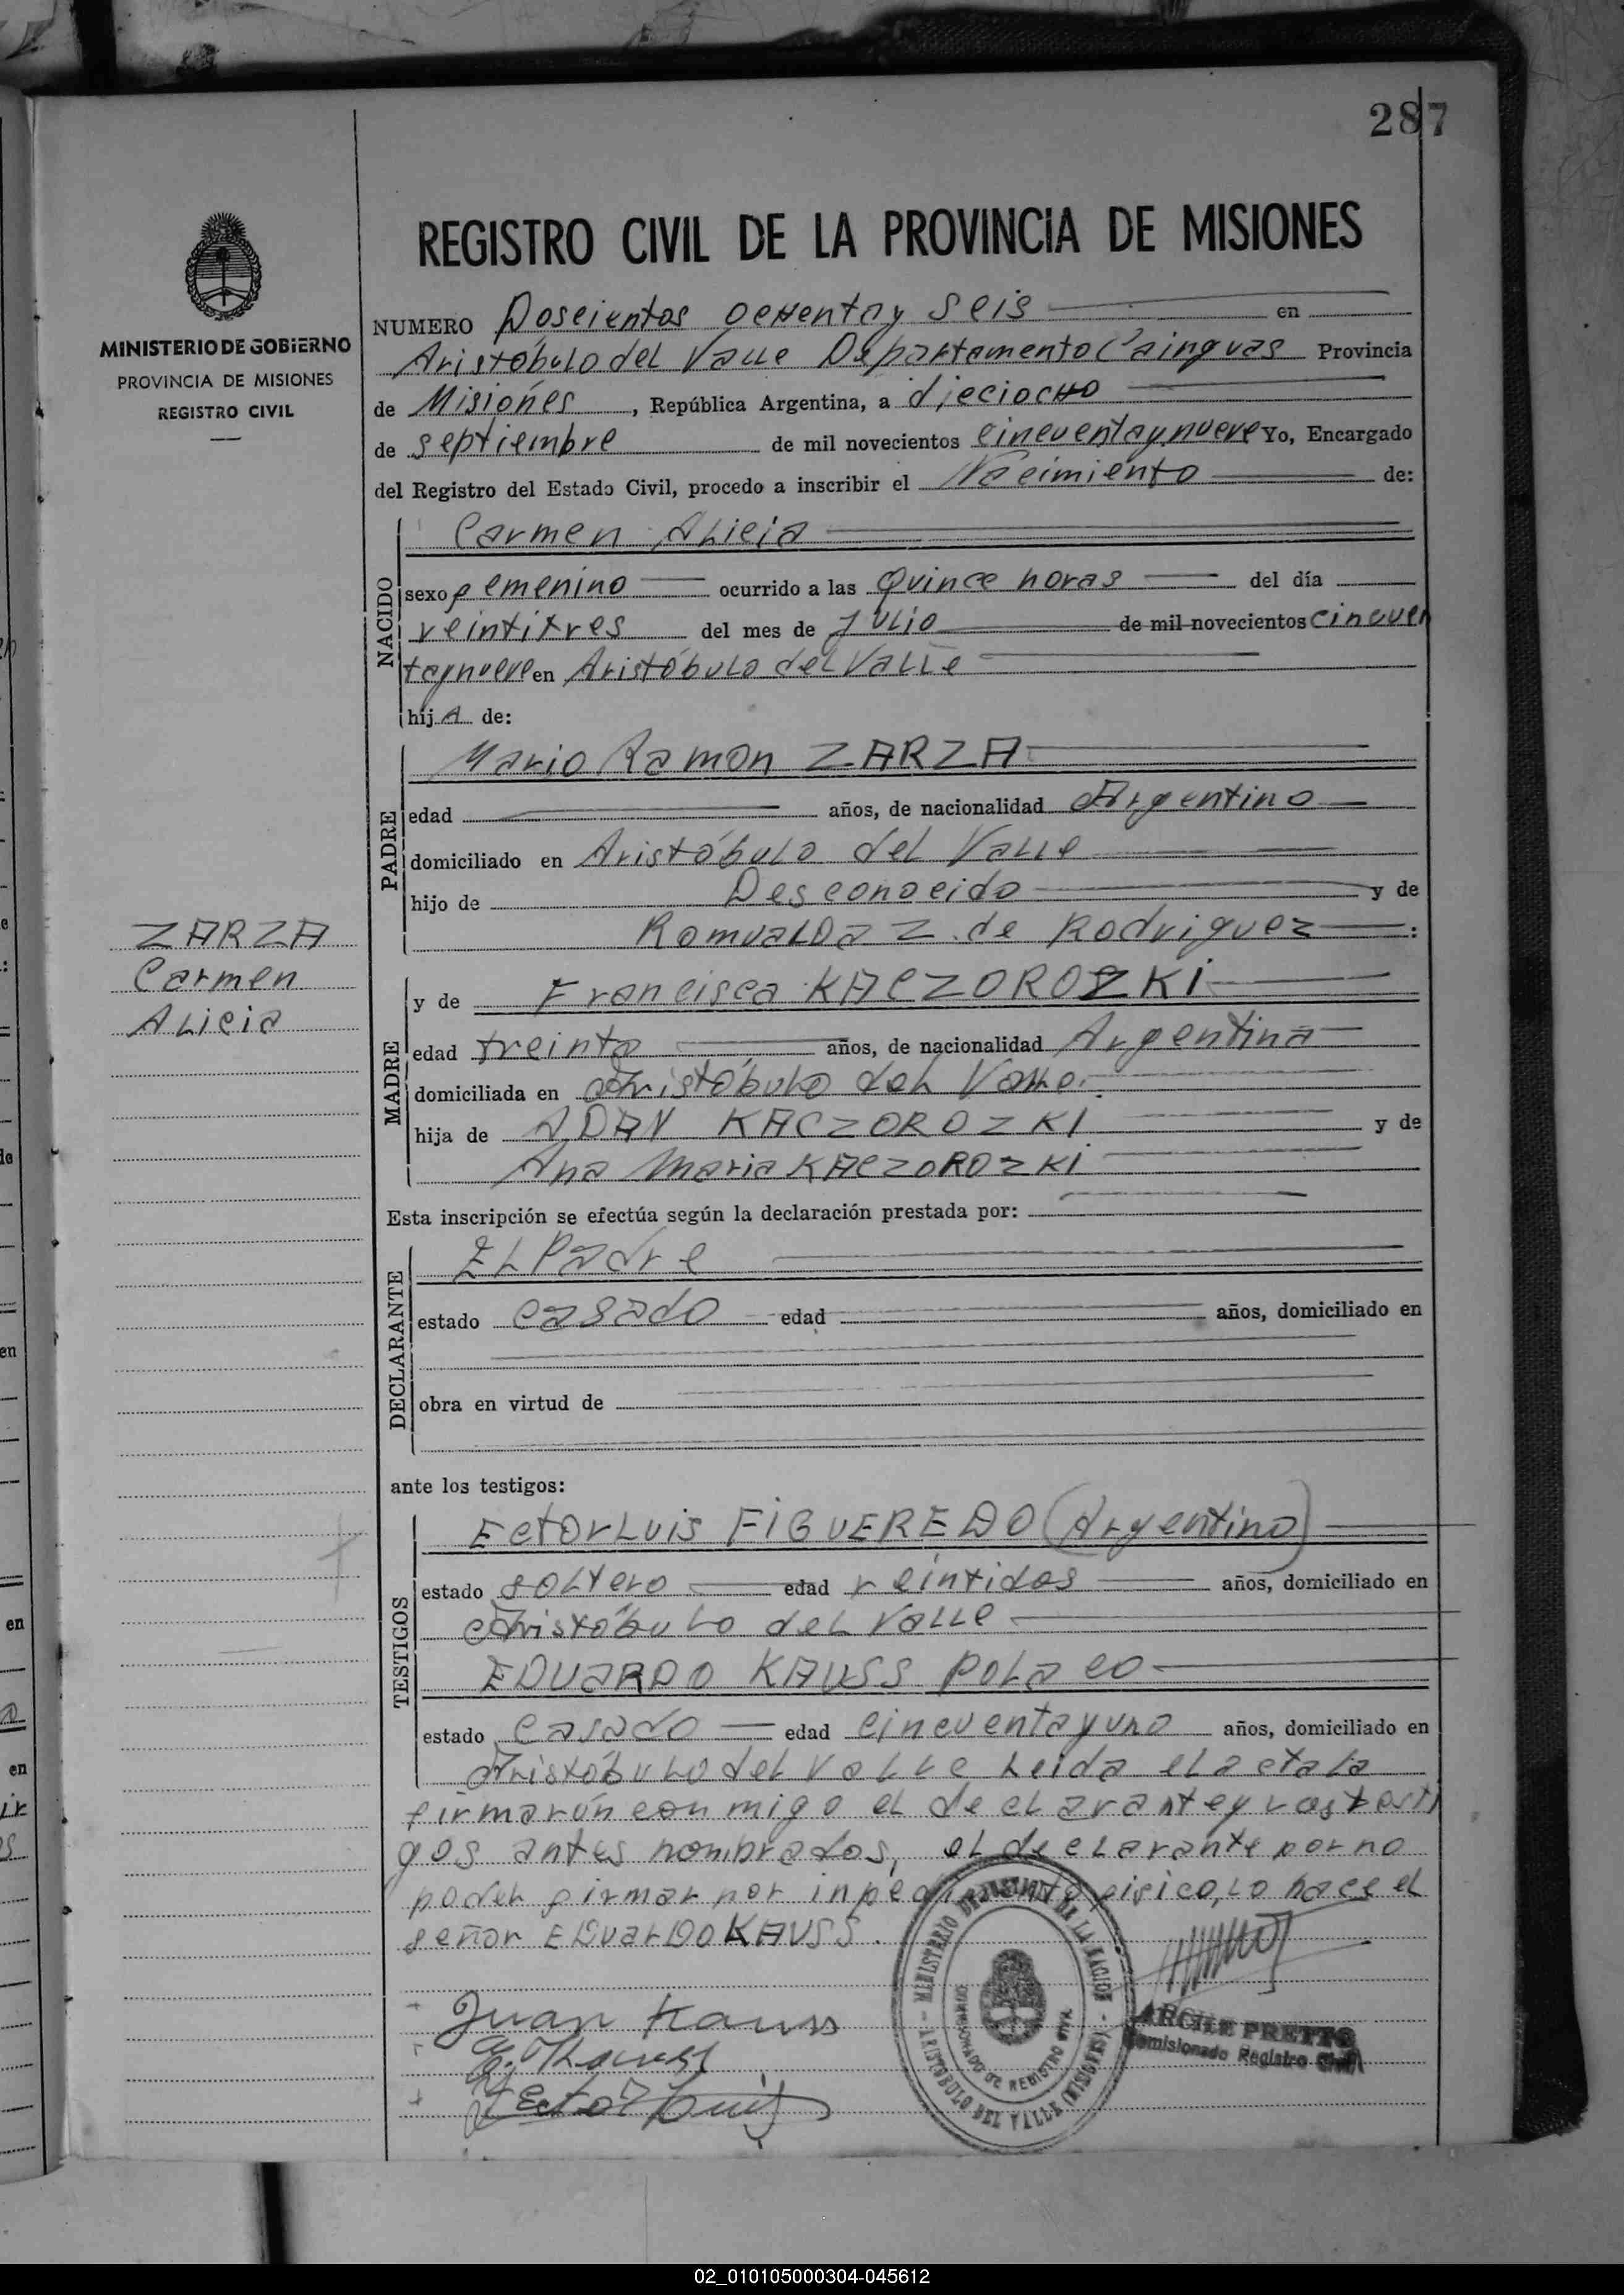 287
MINISTERIO DE GOBIERNO
PROVINCIA DE MISIONES
REGISTRO CIVIL
REGISTRO CIVIL DE LA PROVINCIA DE MISIONES
NUMERO Doscientos ochentay seis en
Aristóbulo del Valle Departamento Cainguas Provincia
de Misiones, República Argentina, a dieciocho
de septiembre de mil novecientos cincuentaynueve Yo, Encargado
del Registro del Estado Civil, procedo a inscribir el Nacimiento de:
NACIDO
Carmen Alicia
sexo femenino ocurrido a las quince horas del día
veintitres del mes de Julio de mil novecientos cincuen
taynueve en Aristóbulo del Valle
hija de:
PADRE
Mario Ramon ZARZA
edad años, de nacionalidad Argentino
domiciliado en Aristóbulo del Valle
hijo de Desconocido y de
Romualda Z. de Rodriguez :
ZARZA
Carmen
Alicia
MADRE
y de Francisca KACZOROZKI
edad treinta años, de nacionalidad Argentina
domiciliada en Aristóbulo del Valle.
hija de ADAN KACZOROZKI y de
Ana Maria KACZOROZKI
Esta inscripción se efectúa según la declaración prestada por:
DECLARANTE
El Padre
estado casado edad años, domiciliado en
obra en virtud de
ante los testigos:
TESTIGOS
Ector Luis FIGUEREDO (Argentino)
estado soltero edad veintidos años, domiciliado en
Aristóbulo del Valle
EDUARDO KAUSS Polaco
estado casado edad cincuentayuno años, domiciliado en
Aristóbulo del Valle Leida el acta la
firmarón con migo el declarante y los testi
gos antes nombrados, el declarante por no
poder firmar por inpedimento fisico, lo hace el
señor EDUARDO KAUSS.
Juan Kauss
E. Kauss
Ector Luis
MINISTERIO DE JUSTICIA DE LA NACION
COMISIONADO DE REGISTRO CIVIL
ARISTOBULO DEL VALLE (MISIONES)
ARCHE PRETTO
Comisionado Registro Civil
02_010105000304-045612